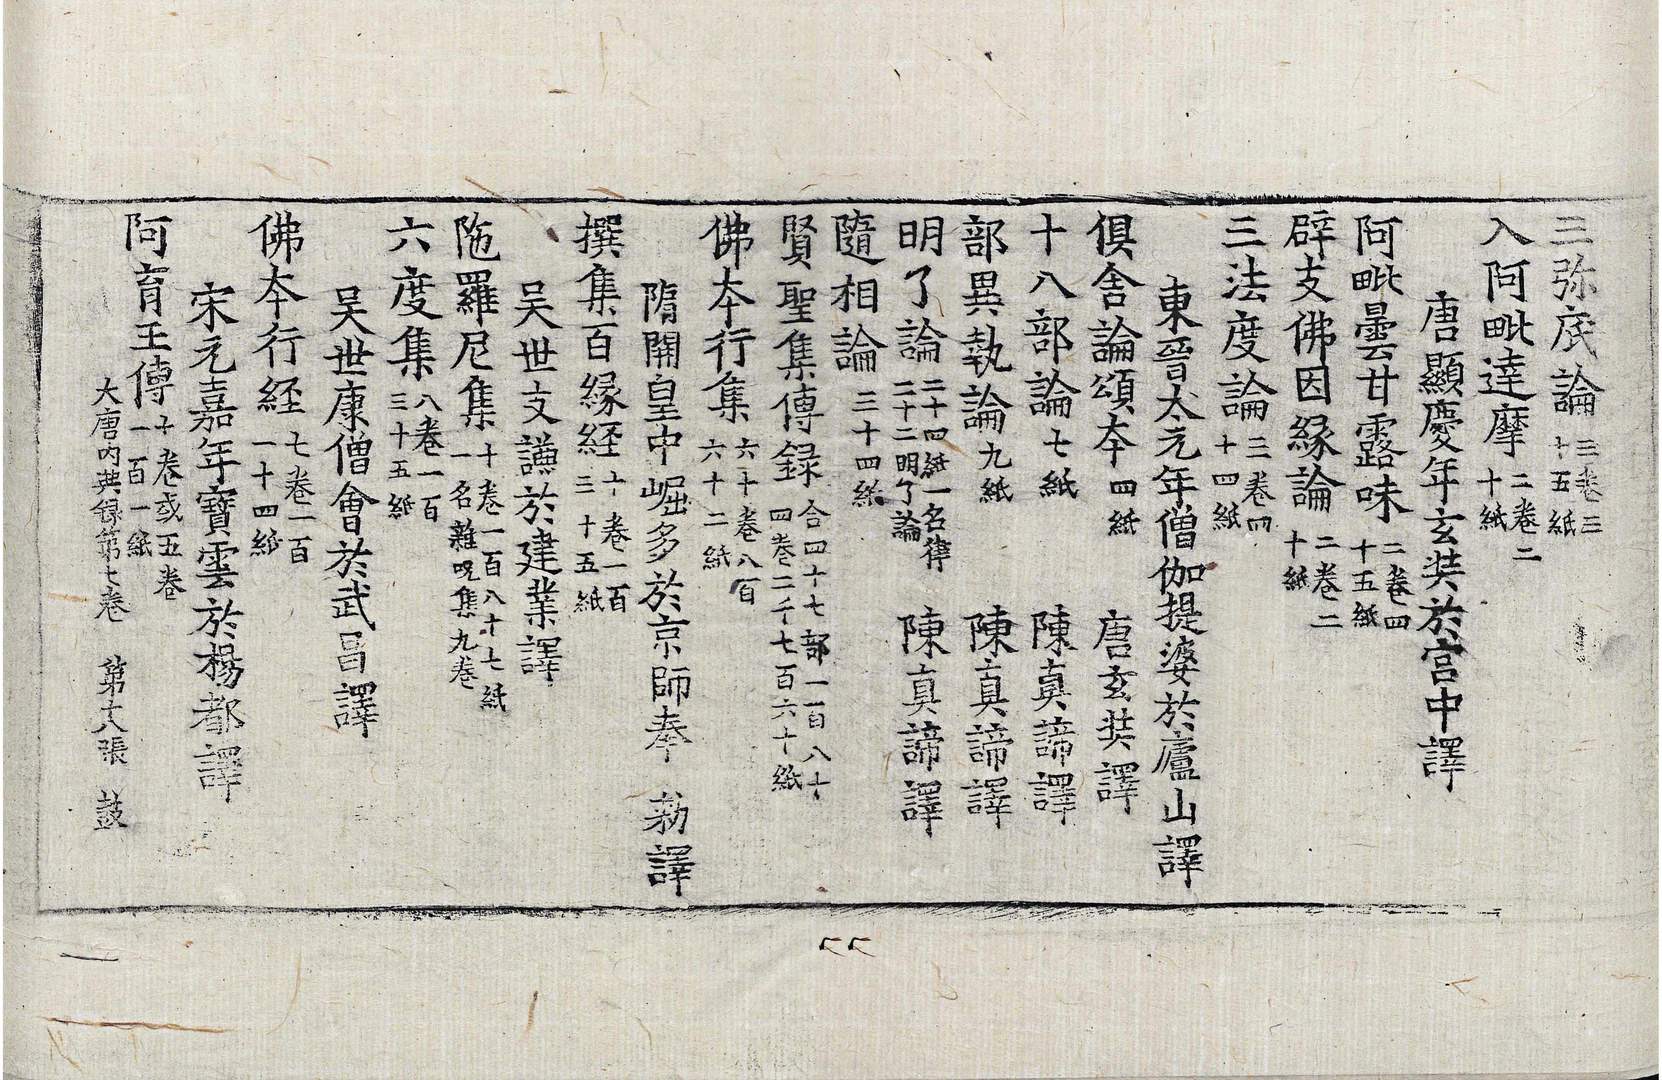 三弥底論三卷三十五紙
入阿毗達摩二卷二十紙
唐顯慶年玄奘於宫中譯
阿毗曇甘露味二卷四十五紙
辟支佛因緣論二卷二十紙
三法度論三卷四十四紙
東晉太元年僧伽提婆於廬山譯
俱舍論頌本四紙 唐玄奘譯
十八部論七紙 陳真諦譯
部異執論九紙 陳真諦譯
明了論二十四紙一名律二十二明了論 陳真諦譯
隨相論三十四紙
賢聖集傳録合四十七部一百八十四卷二千七百六十紙
佛本行集六十卷八百六十二紙
隋開皇中崛多於京師奉 勑譯
撰集百緣経十卷一百三十五紙
吴世支謙於建業譯
陁羅尼集十卷一百八十七紙一名雜呪集九卷
六度集八卷一百三十五紙
吴世康僧會於武昌譯
佛本行経七卷一百一十四紙
宋元嘉年寶雲於楊都譯
阿育王傳七卷或五卷一百一紙
大唐内典録第七卷 第十八張 鼓